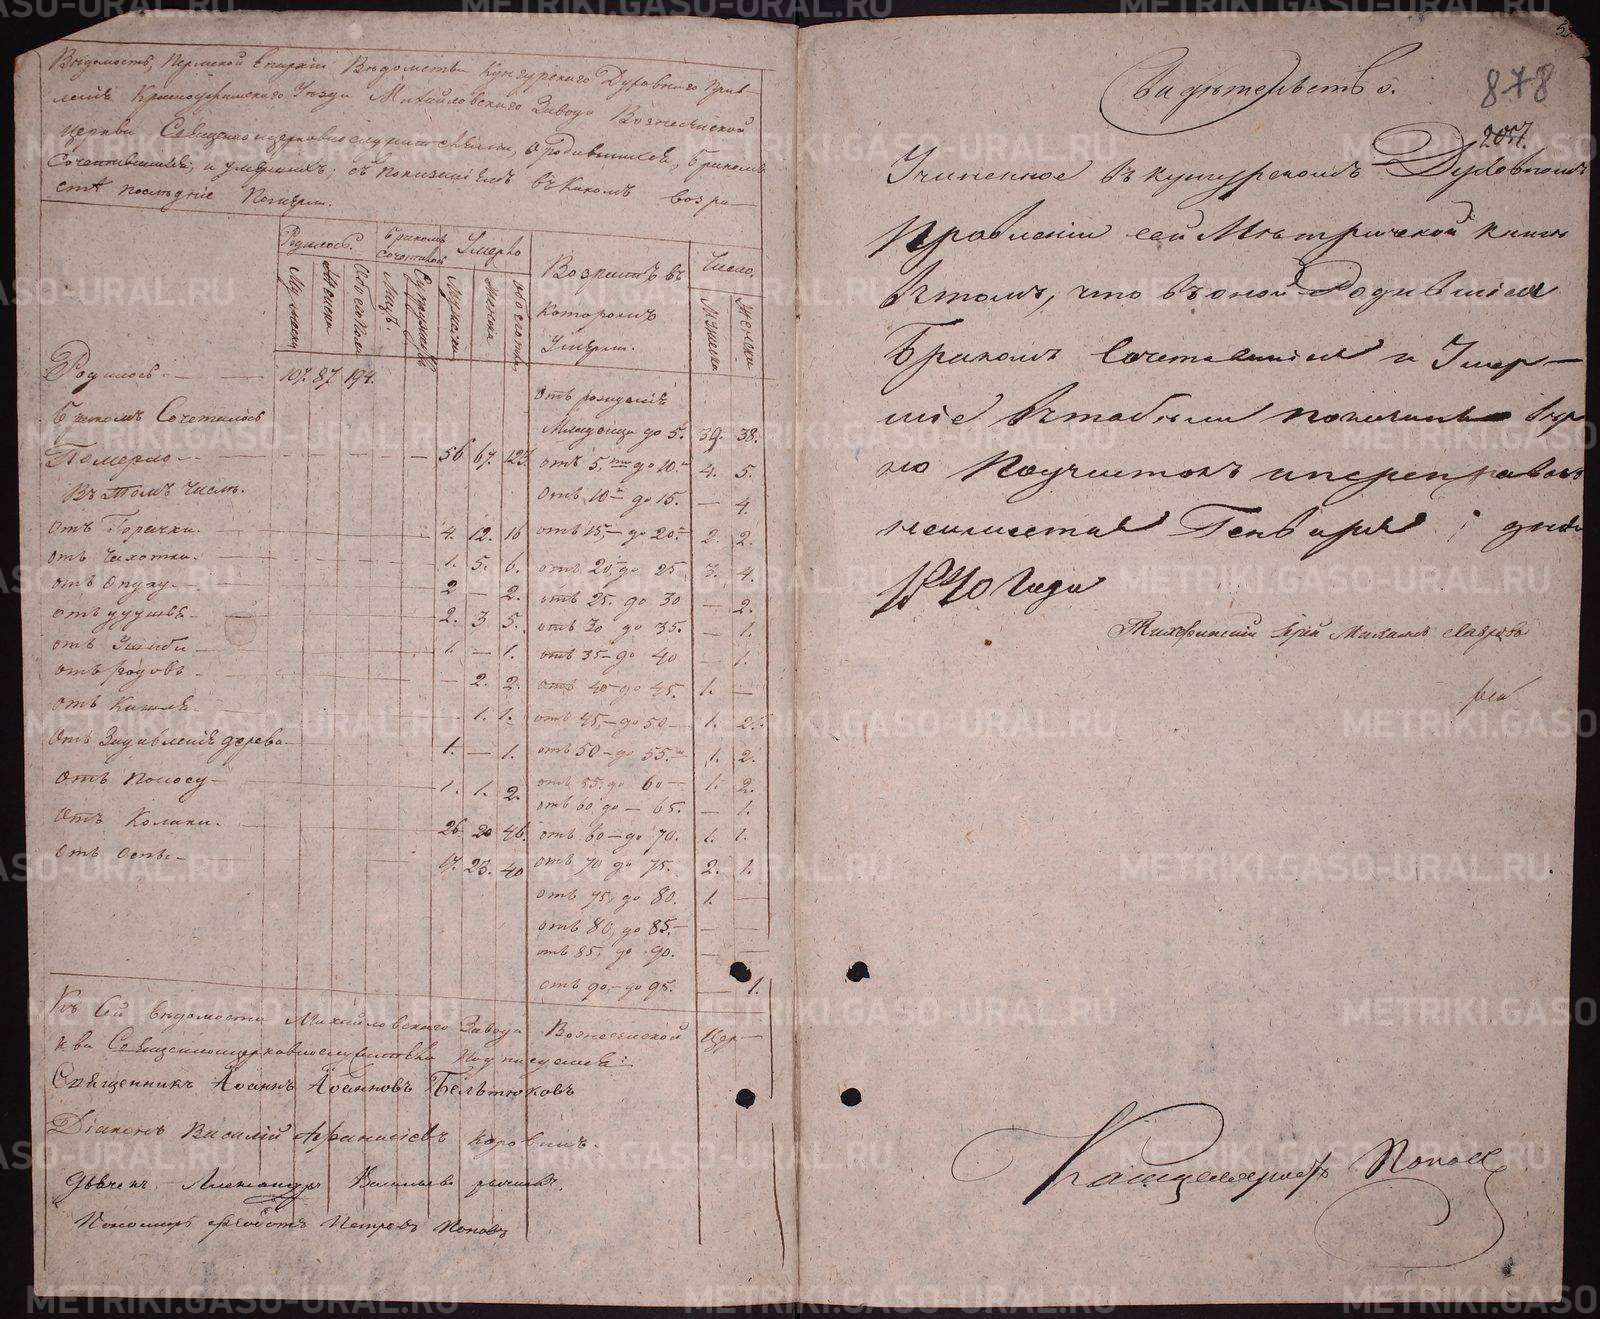 Вѣдомость, Пермской Епархіи Вѣдомства Кунгурского Духовнаго Прав-
ленія Красноуфимскаго Уѣзда Михайловскаго Завода Вознесенской
церкви Священноцерковнослужителями, о родившихся, бракомъ
сочетавшихся, и умершихъ; съ показаніемъ въ какомъ возра-
стѣ последніе померли.
Родилось. Бракомъ сочетавшихся Умерло Возрастъ въ которомъ Умерли. Число.
Мужеска Женска Обоего пола Лицъ. Супружествъ Мужеска Женска обоего пола Мужеска Женска
Родилось 107. 87 194.
Бракомъ Сочетались
Померло 56 67. 123.
Въ томъ числѣ.
отъ Горячки. 4. 12. 16
отъ Чахотки. 1. 5. 6.
отъ Опуху 2 — 2.
отъ удушья 2. 3 5.
отъ Ушиби 1. — 1.
отъ родовъ — 2. 2.
отъ Кашля — 1. 1.
отъ Задавленія дерева 1. — 1.
отъ Поносу 1. 1. 2.
отъ Колики. 26. 20 46.
отъ Оспы 17. 23. 40
отъ рожденія
Младенца до 5. 39. 38.
отъ 5. до 10. 4. 5.
отъ 10 до 15. — 4.
отъ 15 до 20. 2. 2.
отъ 20, до 25 3. 4.
отъ 25. до 30 — 2.
отъ 30 до 35. — 1.
отъ 35 до 40 — 1.
отъ 40 до 45. 1. —
отъ 45, до 50 1. 2.
отъ 50 до 55. 1. 2.
отъ 55. до 60 1. 2.
отъ 60 до 65. — 1.
отъ 60 до 70. 1. 1.
отъ 70 до 75. 2. 1.
отъ 75, до 80. 1. —
отъ 80, до 85. — —
отъ 85, до 90. — —
отъ 90, до 95. — 1.
Къ Сей вѣдомости Михайловскаго Завода Вознесенской Цер-
кви Священноцерковнослужители подписуемся:
Священникъ Іоаннъ Іоанновъ Бельтюковъ
Діаконъ Василій Афанасіевъ Коровинъ.
Дьячекъ Александръ Васильевъ
Пономарь Ѳеодотъ Петровъ Поповъ
878
207.
Свидѣтельство.
Учиненное въ кунгурскомъ Духовномъ
Правленіи сей Метрической книги
въ томъ, что въ оной Родившіеся
Бракомъ Сочетавшіеся и Умер-
шіе въ табели показаны вѣр
но
Генваря дня
1840 Года
Тихвинскій Іерей
Канцеляристъ Поповъ
METRIKI.GASO-URAL.RU